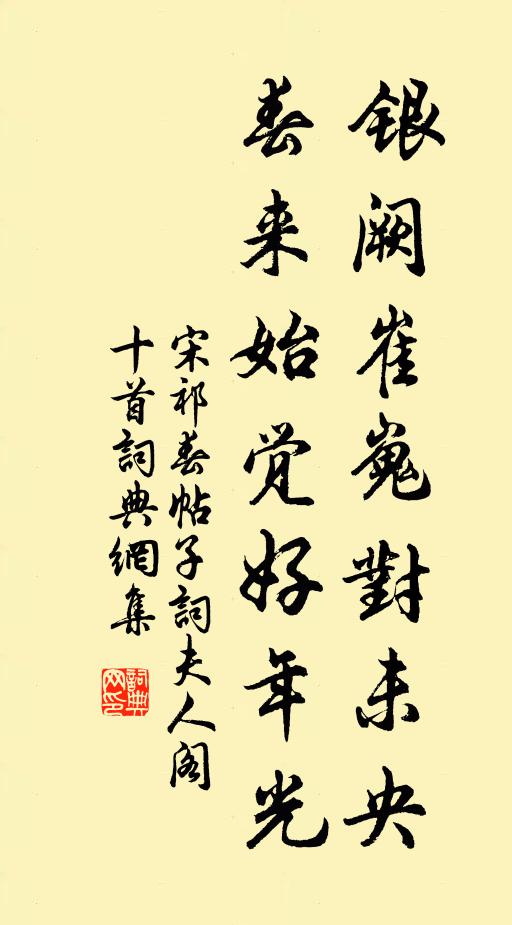 银阙崔嵬對未央
春来始觉好年光
宋祁春帖子詞夫人阁
十首詞典網集
詞典
网印